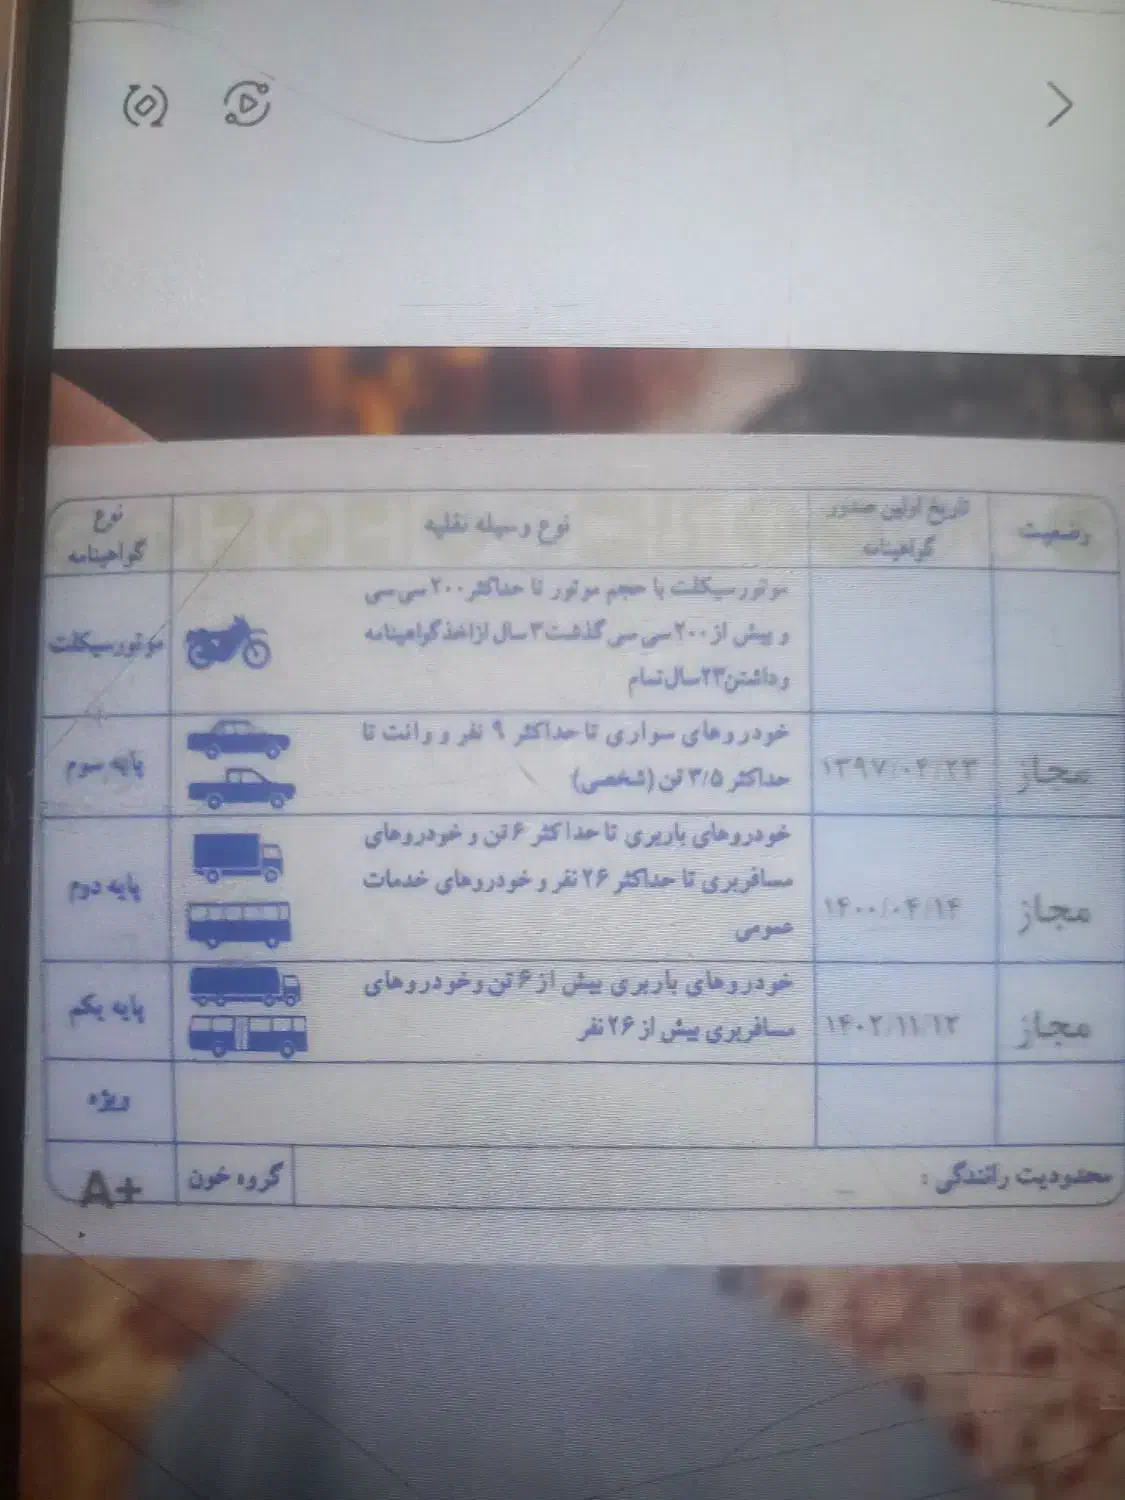 وضعیت
تاریخ اولین صدور
گواهینامه
نوع وسیله نقلیه
نوع
گواهینامه
موتورسیکلت با حجم موتور تا حداکثر ۲۰۰ سی سی
و بیش از ۲۰۰ سی سی گذشت ۳ سال از اخذ گواهینامه
و داشتن ۲۳ سال تمام
موتورسیکلت
مجاز
۱۳۹۷/۰۴/۲۳
خودروهای سواری تا حداکثر ۹ نفر و وانت تا
حداکثر ۳/۵ تن (شخصی)
پایه سوم
مجاز
۱۴۰۰/۰۴/۱۴
خودروهای باربری تا حداکثر ۶ تن و خودروهای
مسافربری تا حداکثر ۲۶ نفر و خودروهای خدمات
عمومی
پایه دوم
مجاز
۱۴۰۲/۱۱/۱۲
خودروهای باربری بیش از ۶ تن و خودروهای
مسافربری بیش از ۲۶ نفر
پایه یکم
ویژه
محدودیت رانندگی :
گروه خون
A+